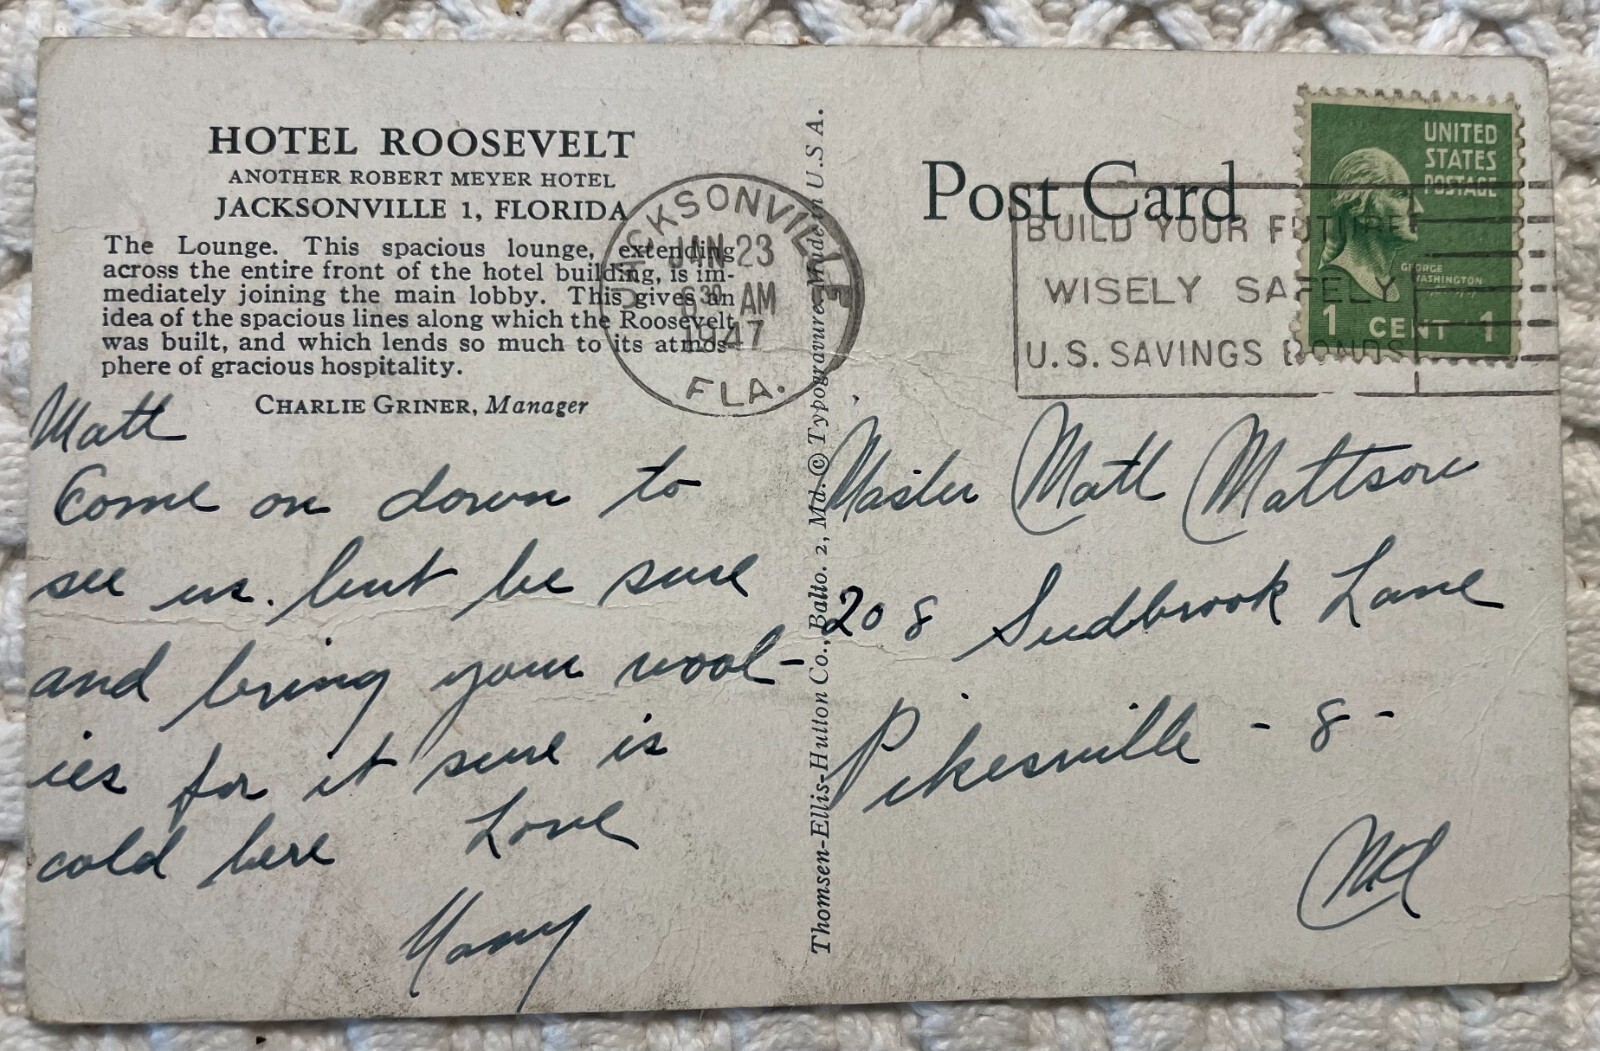 HOTEL ROOSEVELT
ANOTHER ROBERT MEYER HOTEL
JACKSONVILLE 1, FLORIDA
The Lounge. This spacious lounge, extending
across the entire front of the hotel building, is im-
mediately joining the main lobby. This gives an
idea of the spacious lines along which the Roosevelt
was built, and which lends so much to its atmos-
phere of gracious hospitality.
CHARLIE GRINER, Manager
Matt
Come on down to
see us. but be sure
and bring your wool-
ies for it sure is
cold here Love
JACKSONVILLE
JAN 23
6 30 AM
1947
FLA.
Thomsen-Ellis-Hutton Co., Balto. 2, Md. © Typogravure-Made in U.S.A.
Post Card
BUILD YOUR FUTURE
WISELY SAFELY
U.S. SAVINGS BONDS
UNITED
STATES
POSTAGE
GEORGE
WASHINGTON
1 CENT 1
Master Matt Mattson
208 Sudbrook Lane
Pikesville - 8 -
Md